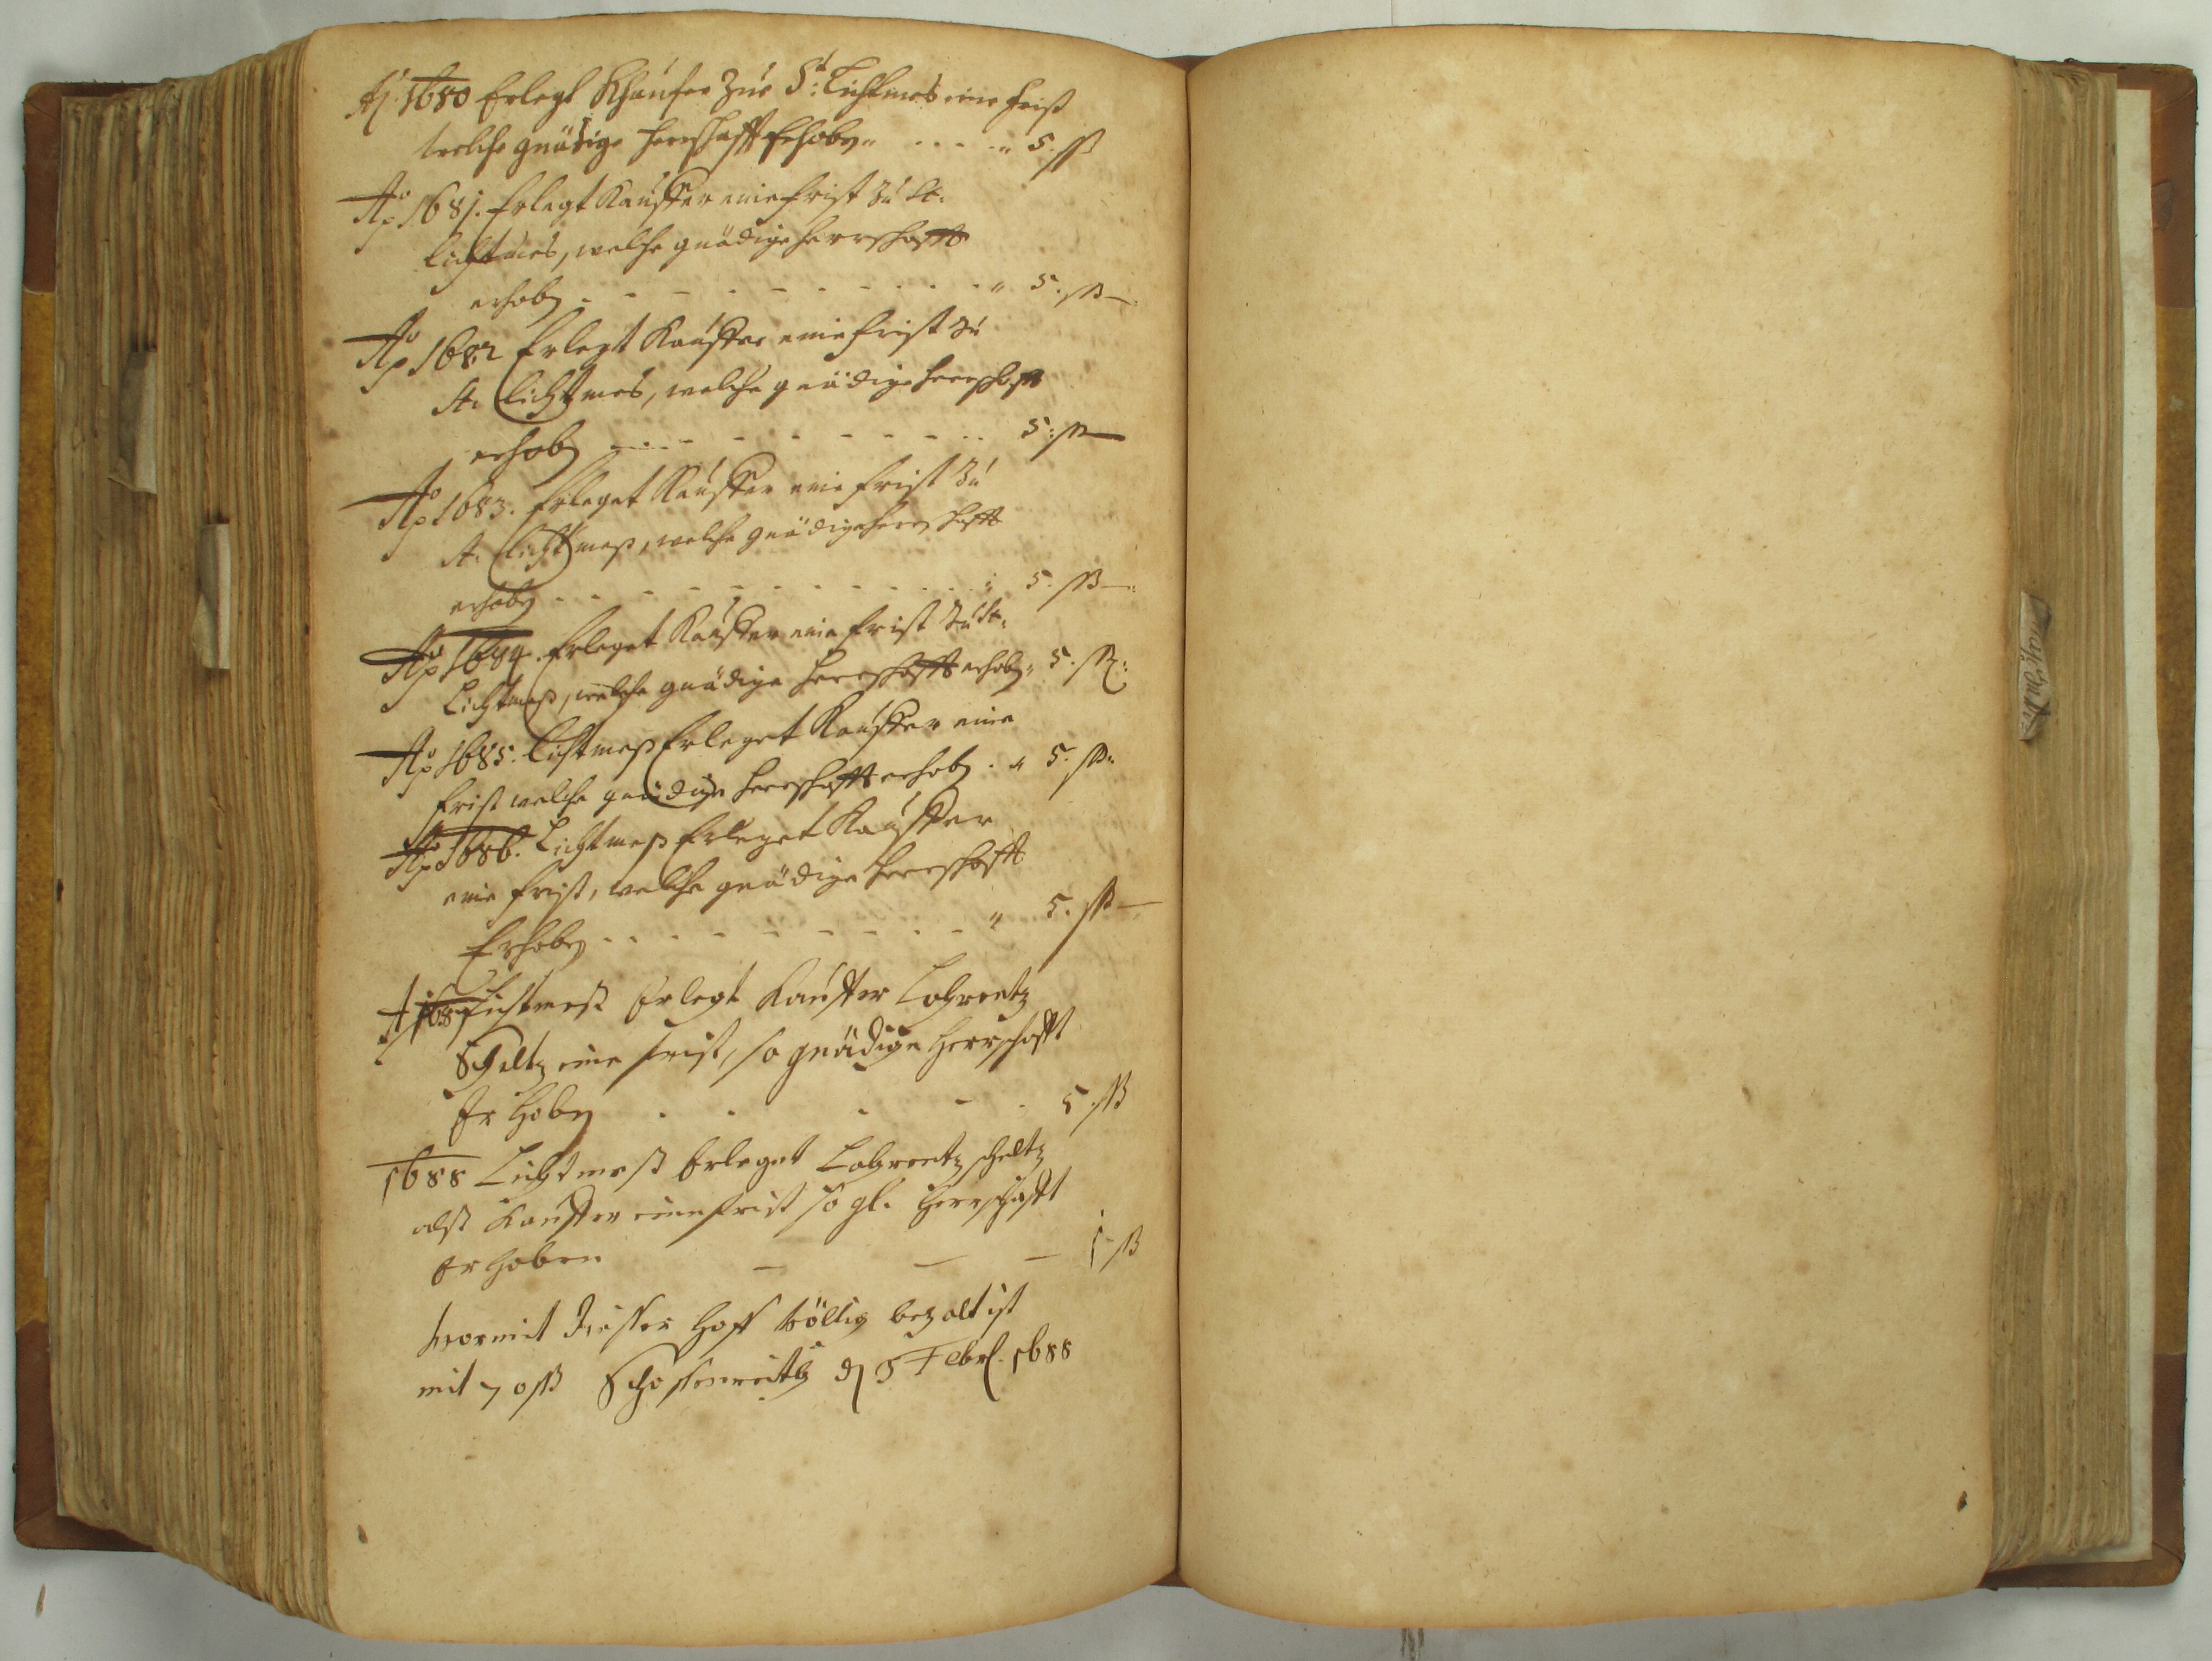 Ao 1680 Erlegt Khauffer Zue St: Lichtmes eine frist
welche gnädige herrschafft Erhoben " . . . . " 5. ßß
Ao 1681. Erlegt Kauffer eine frist zu St.
Lichtmes, welche gnädige herrschafft
erhoben . - - - - - - - - . " 5. ßß —.
Ao 1682 Erlegt Kauffer eine frist zu
St. Lichtmes, welche gnädige herrschafft
erhoben - . . - - - - - - - . . 5: ßß —
Ao 1683. Erleget Kauffer eine frist zu
St. Lichtmeß, welche gnädige herrschafft
erhoben . - - - - - - - - - . " 5. ßß —:
Ao 1684. Erleget Kauffer eine frist zu St.
Lichtmeß, welche gnädige herrschafft erhoben " 5. ßß:
Ao 1685. Lichtmeß Erleget Kauffer eine
frist welche gnädige herrschafft erhoben . " 5. ßß.
Ao 1686. Lichtmeß Erleget Kauffer
eine frist, welche gnädige herrschafft
Erhoben . . - - - - - - . - " 5. ßß —
Ao 1687 Lichtmeß Erlegt Kauffer Lohrentz
Scheltz eine frist, so gnädige Herrschafft
Er Hoben . - - - . 5 ßß
1688 Lichtmeß Erleget Lohrentz scheltz
alß Kauffer eine frist so gl. Herrschafft
Er hoben — — — 1 - ßß
wormit dießer Hoff völlig bezalt ist
mit 70 ßß Schossenreith d 5 Febr. 1688